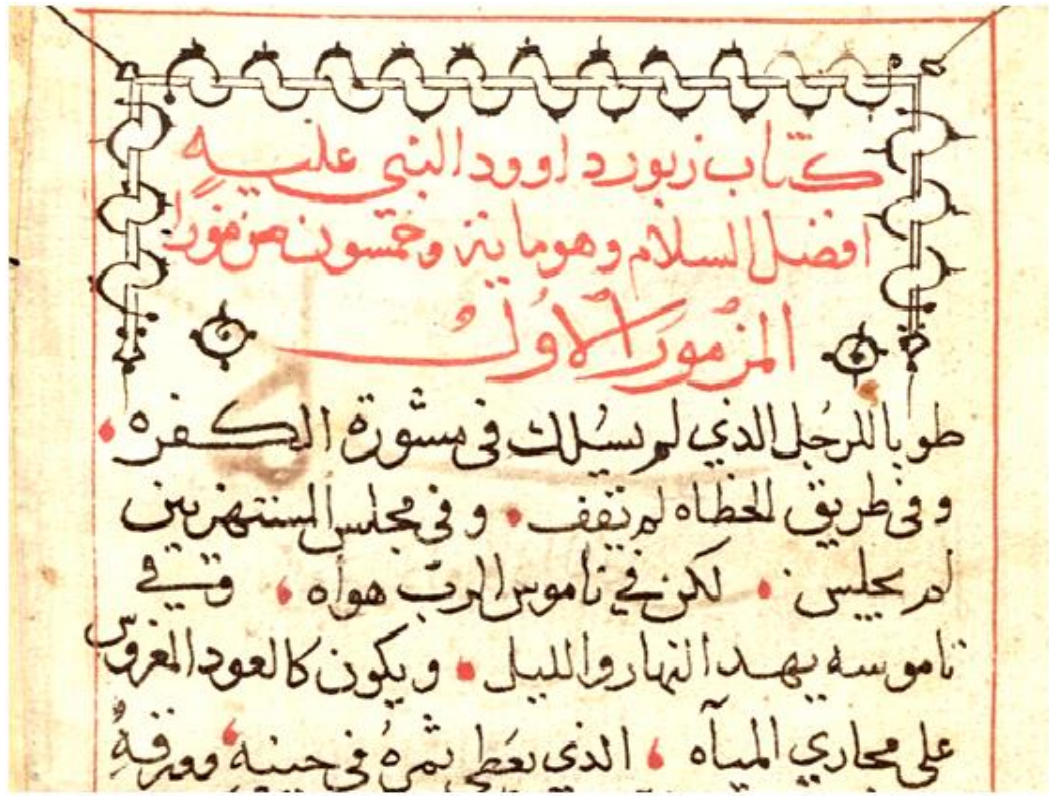 كتاب زبور داوود النبي عليه
افضل السلام وهو ماية وخمسون مزمورا
المزمور الاول
طوبا للرجل الذي لم يسلك في مشورة الكفره
وفي طريق الخطاه لم يقف وفي مجلس المستهزيين
لم يجلس لكن في ناموس الرب هواه وفي
ناموسه يهد النهار والليل ويكون كالعود المغروس
على مجاري المياه الذي يعطي ثمره في حينه وورقه